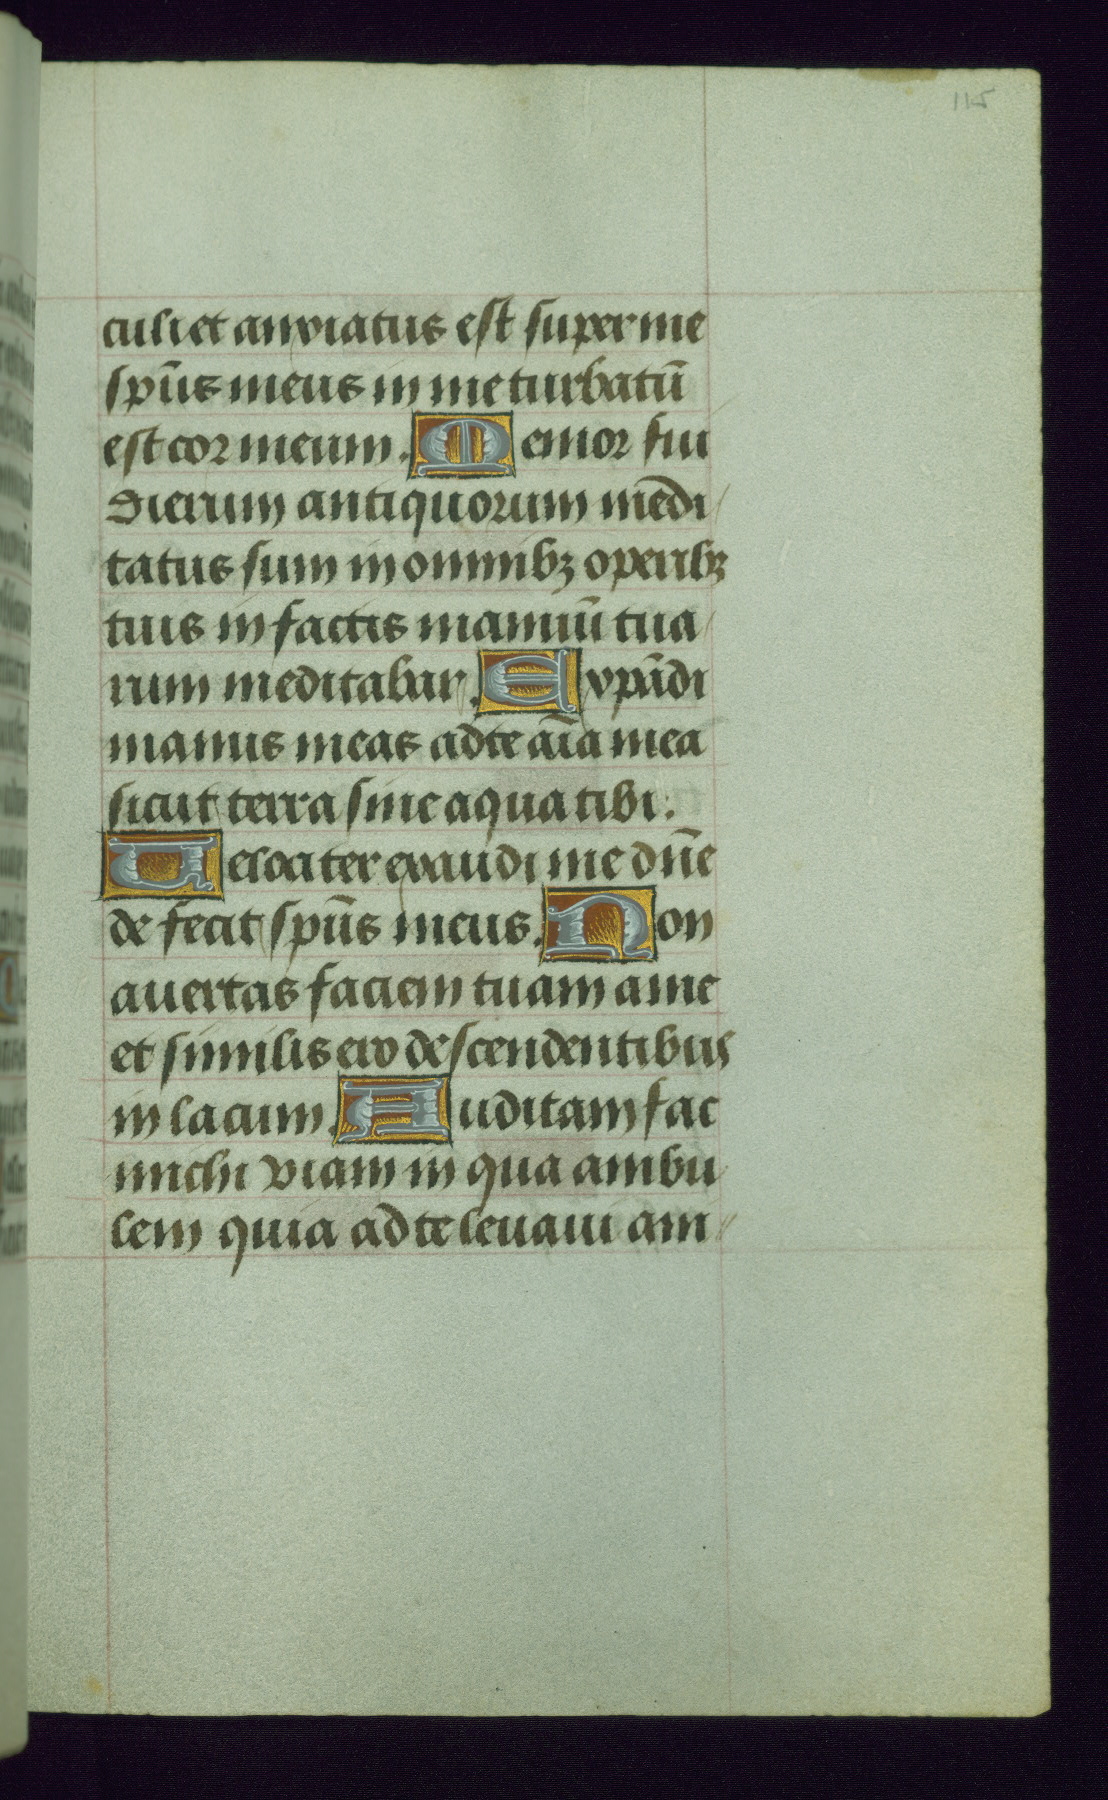 115
culi et anxiatus est super me
spūs meus in me turbatū
est cor meum. Memor fui
dierum antiquorum medi
tatus sum in omnibꝫ operibꝫ
tuis in factis manuū tua
rum meditabar. Expādi
manus meas ad te aīa mea
sicut terra sine aqua tibi.
Velociter exaudi me dn̄e
de fecit spūs meus. Non
auertas faciem tuam a me
et similis ero descendentibus
in lacum. Auditam fac
michi viam in qua ambu
lem quia ad te leuaui am